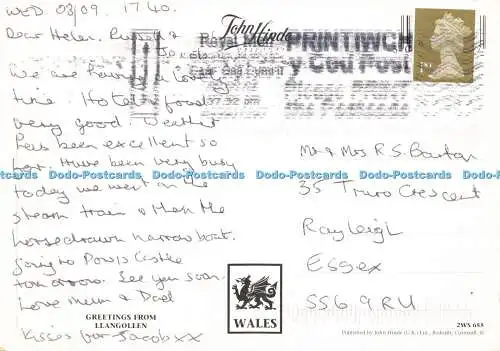 WED 03/09. 17.40.
Dear Helen, Russell &
We are having a lovely
time Hotel & food
very good. Weather
has been excellent so
far. Have been very busy
today we went on the
steam train & then the
horsedrawn narrow boat.
going to Powis Castle
tomorrow. See you soon.
Love Mum & Dad
Kisses for Jacob xx
GREETINGS FROM
LLANGOLLEN
John Hinde
Royal Mail
PRINTIWCH
y Cod Post
1st
Mr & Mrs R.S. Barton
35 Truro Crescent
Rayleigh
Essex
SS6 9RU
WALES
2WS 688
Published by John Hinde (U.K.) Ltd., Redruth, Cornwall.
Dodo-Postcards Dodo-Postcards Dodo-Postcards Dodo-Postcards Dodo-Postcards